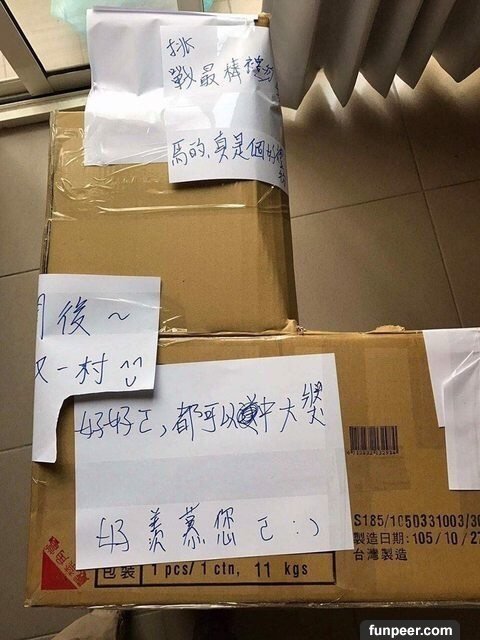 挑
戰最棒禮物
馬的,真是個好禮
月後～
又一村
好好ㄛ,都可以中大獎
好羨慕您ㄛ:)
S185/1050331003/30
製造日期:105/10/27
台灣製造
包裝 1 pcs/1 ctn, 11 kgs
funpeer.com